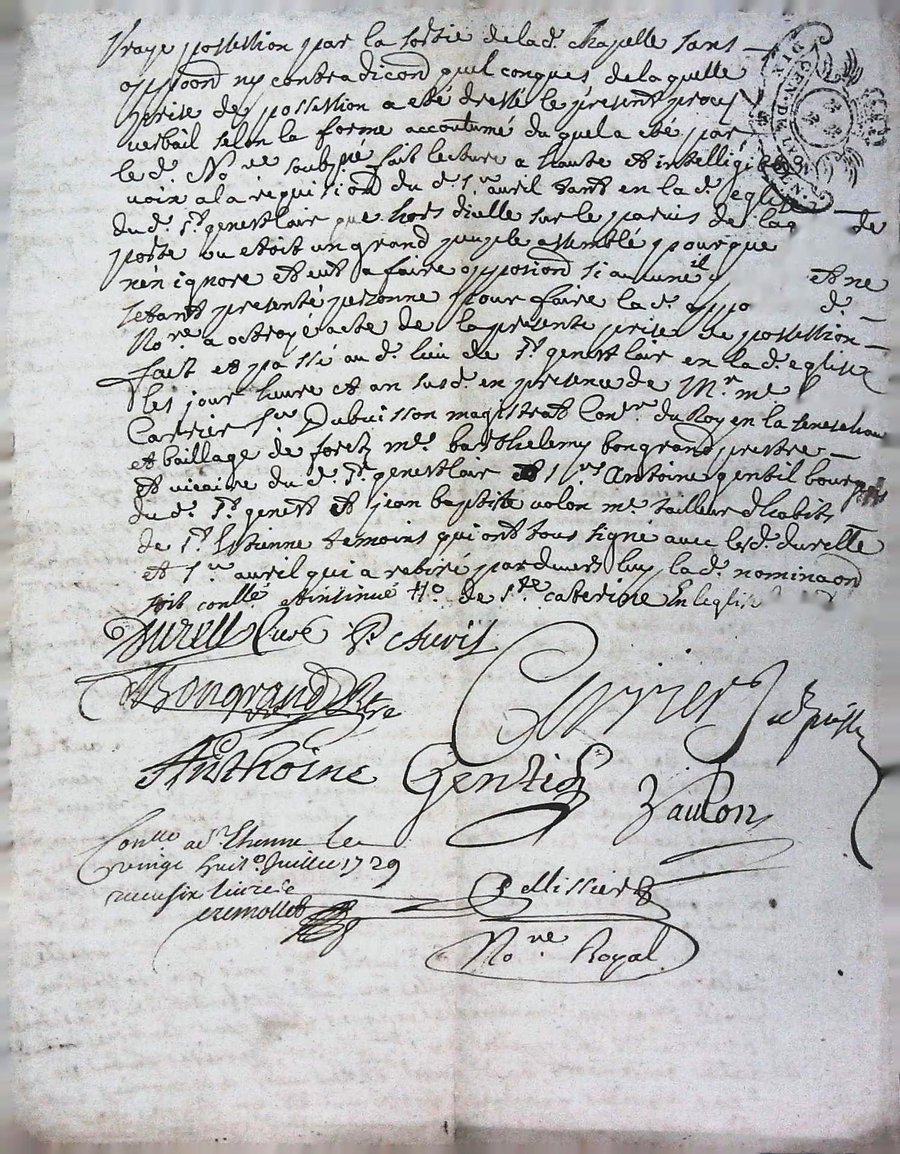 Vraye possession par la sortie de lad. chapelle sans
opposiond ny contradiciond quelconques de laquelle
prise de possession a eté dressé le présent proces
verbail selon la forme accoutumé duquel a eté par
le d. No.re soubz.né fait lecture a haute et intelligible
voix a la requisitiond du d. s.r avril tant en la d. eglise
du d. s.t genestlair que hors dicelle sur le parvis de la de
porte ou etoit un grand peuple assemblé pour que
n'en ignore et eut a faire opposiond si aucune il et ne
setant presenté personne pour faire la d. oppo d.
No.re a octroyé acte de la presente prise de possession
fait et passé au d. lieu de s.t genest lair en la d. eglise
les jour heure et an susd. en presence de M.r me
Carrier s.r Dubuisson magistrat Con.er du Roy en la senechau
et baillage de forez m.e barthelemy bongrand prestre
et vicaire du d. s.t genestlair et s.rs Antoine gentil bourgois
du d. s.t genest et jean baptiste volon m.e tailleur d'habits
de s.t Estienne temoins qui ont tous signé avec les d. durelle
et s.r avril qui a retiré pardevers luy la d. nominaond
soit conllé et insinué No. de s.te caterine En leglise
Durell Curé
Bongrand
Carrier
Anthoine Gentil
Vaulon
Conlle a s.t Etienne le
vingt huit Juillet 1729
receu six livres
cremollet
Pellissier
No.re Royal
GEN. DE
DIX